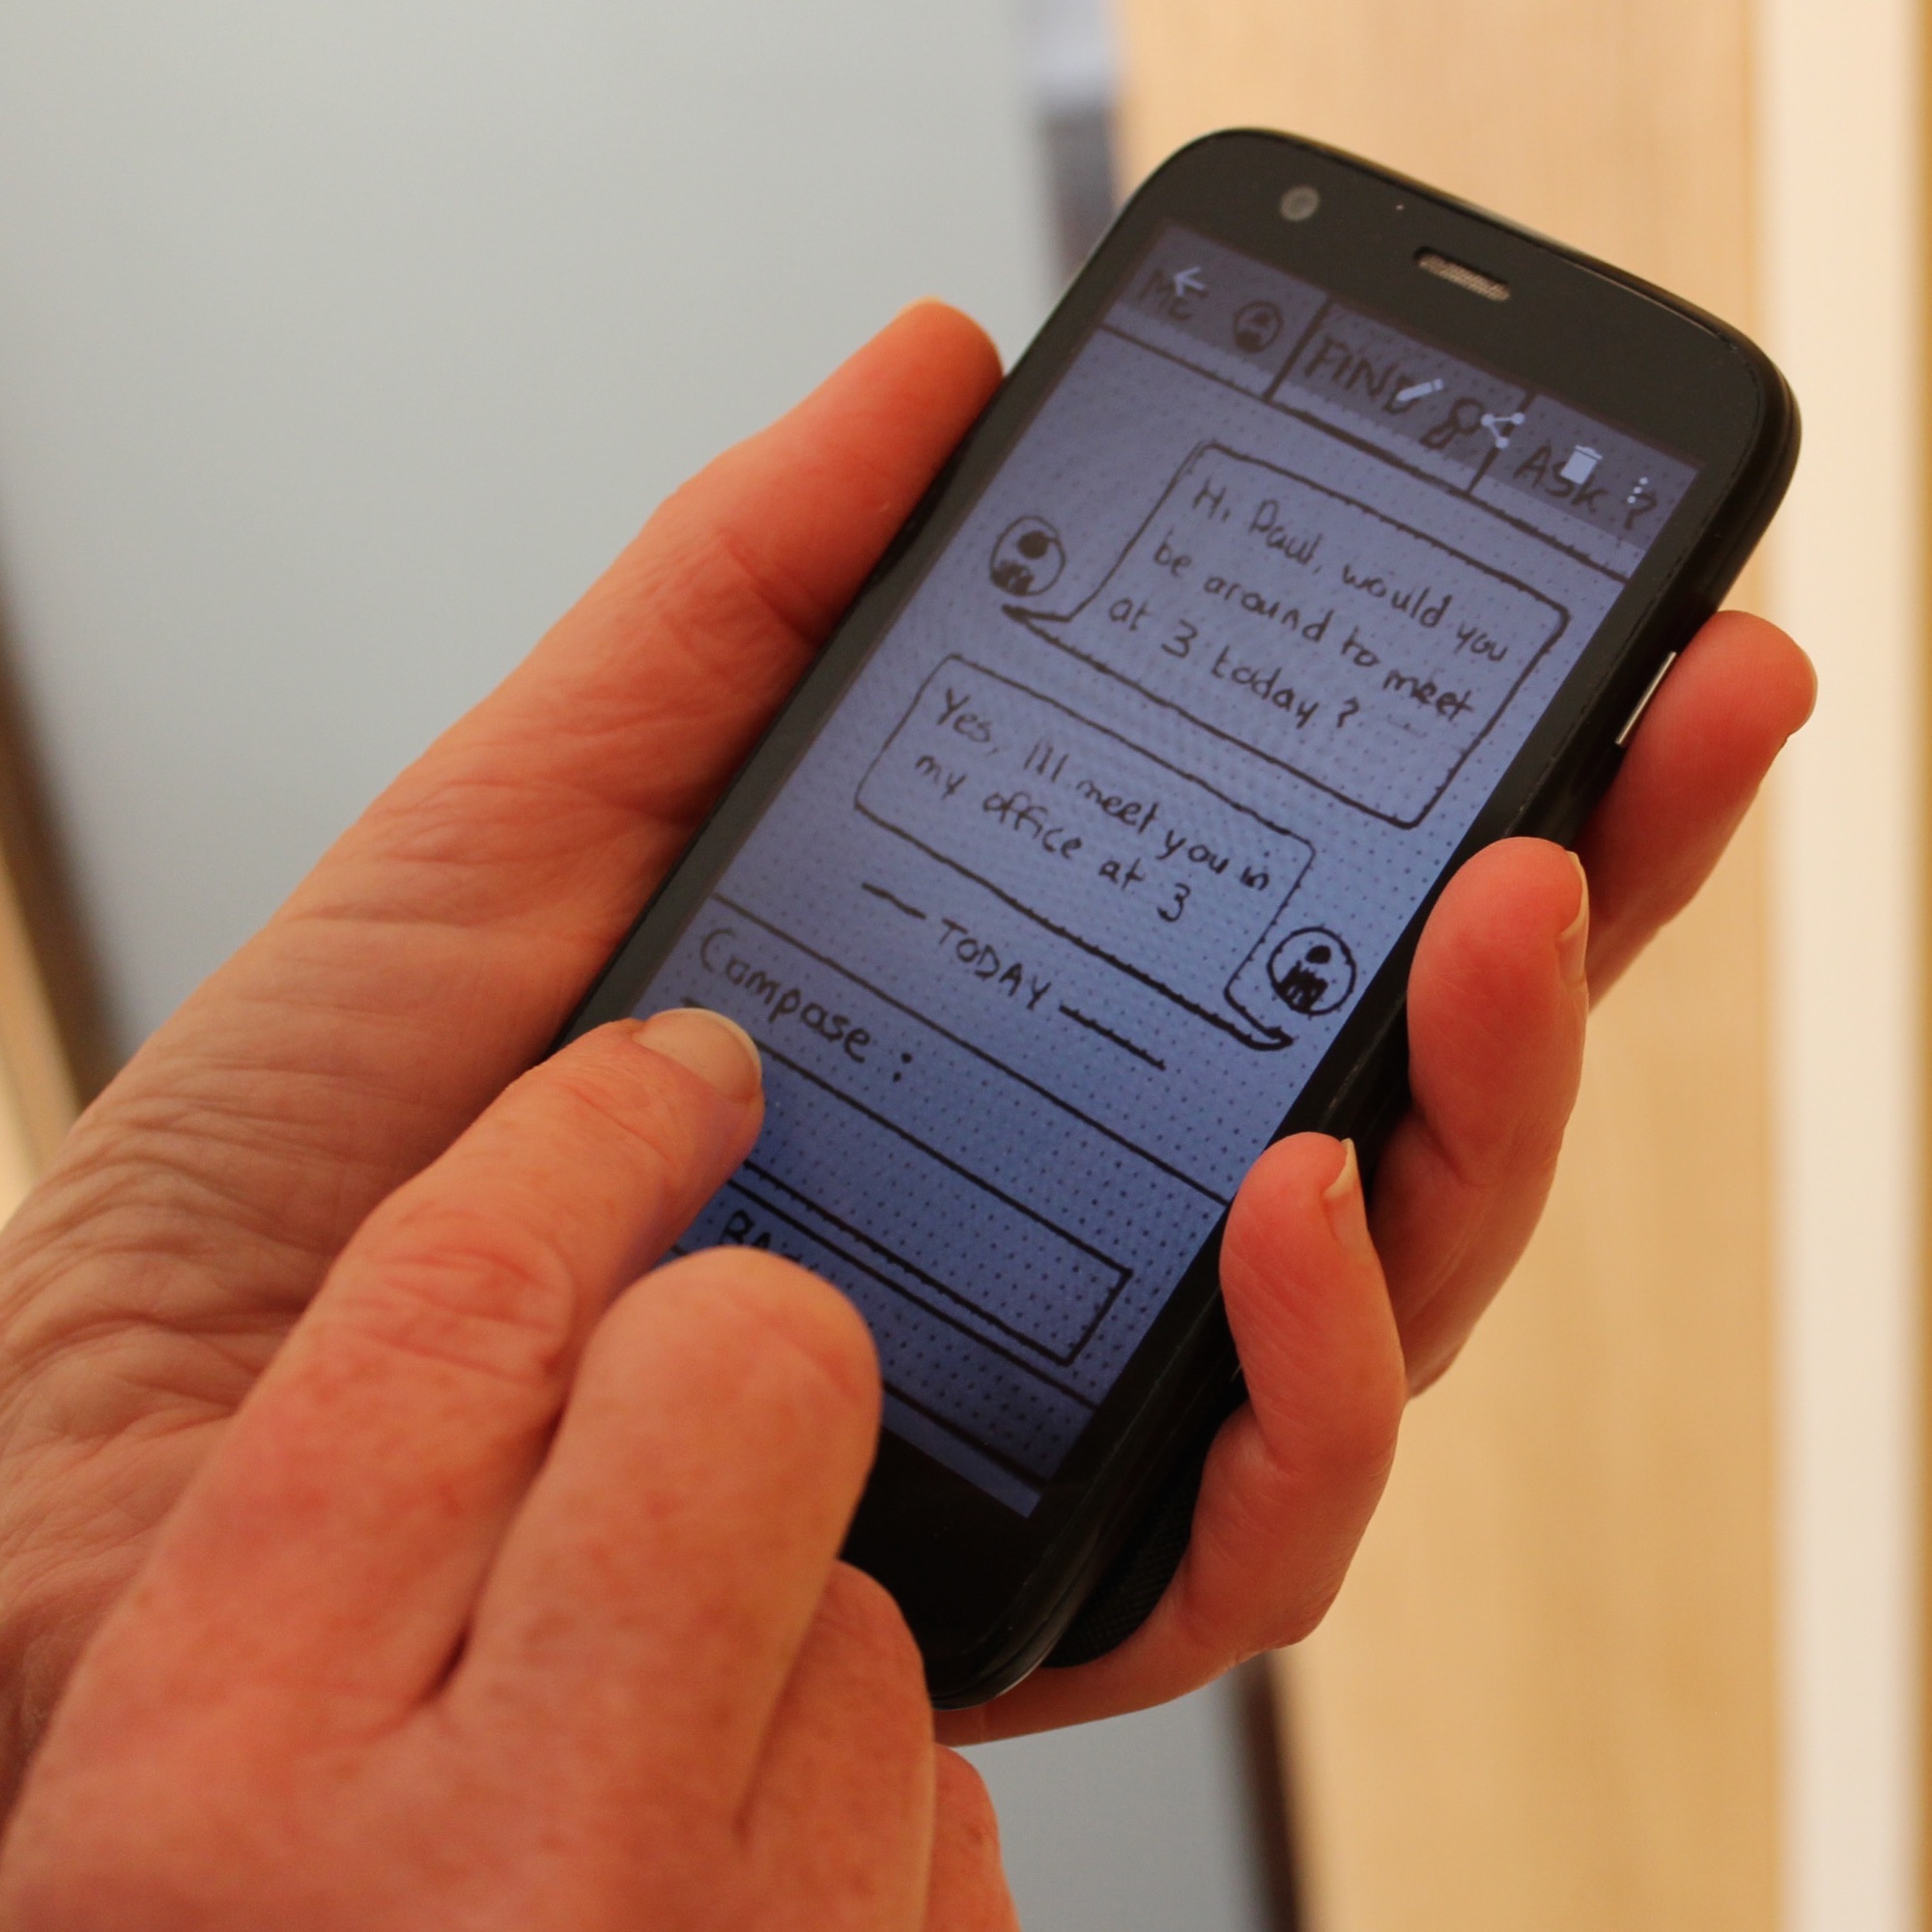 ME FIND ASK ?
Hi Paul, would you
be around to meet
at 3 today ?
Yes, I'll meet you in
my office at 3
TODAY
Compose :